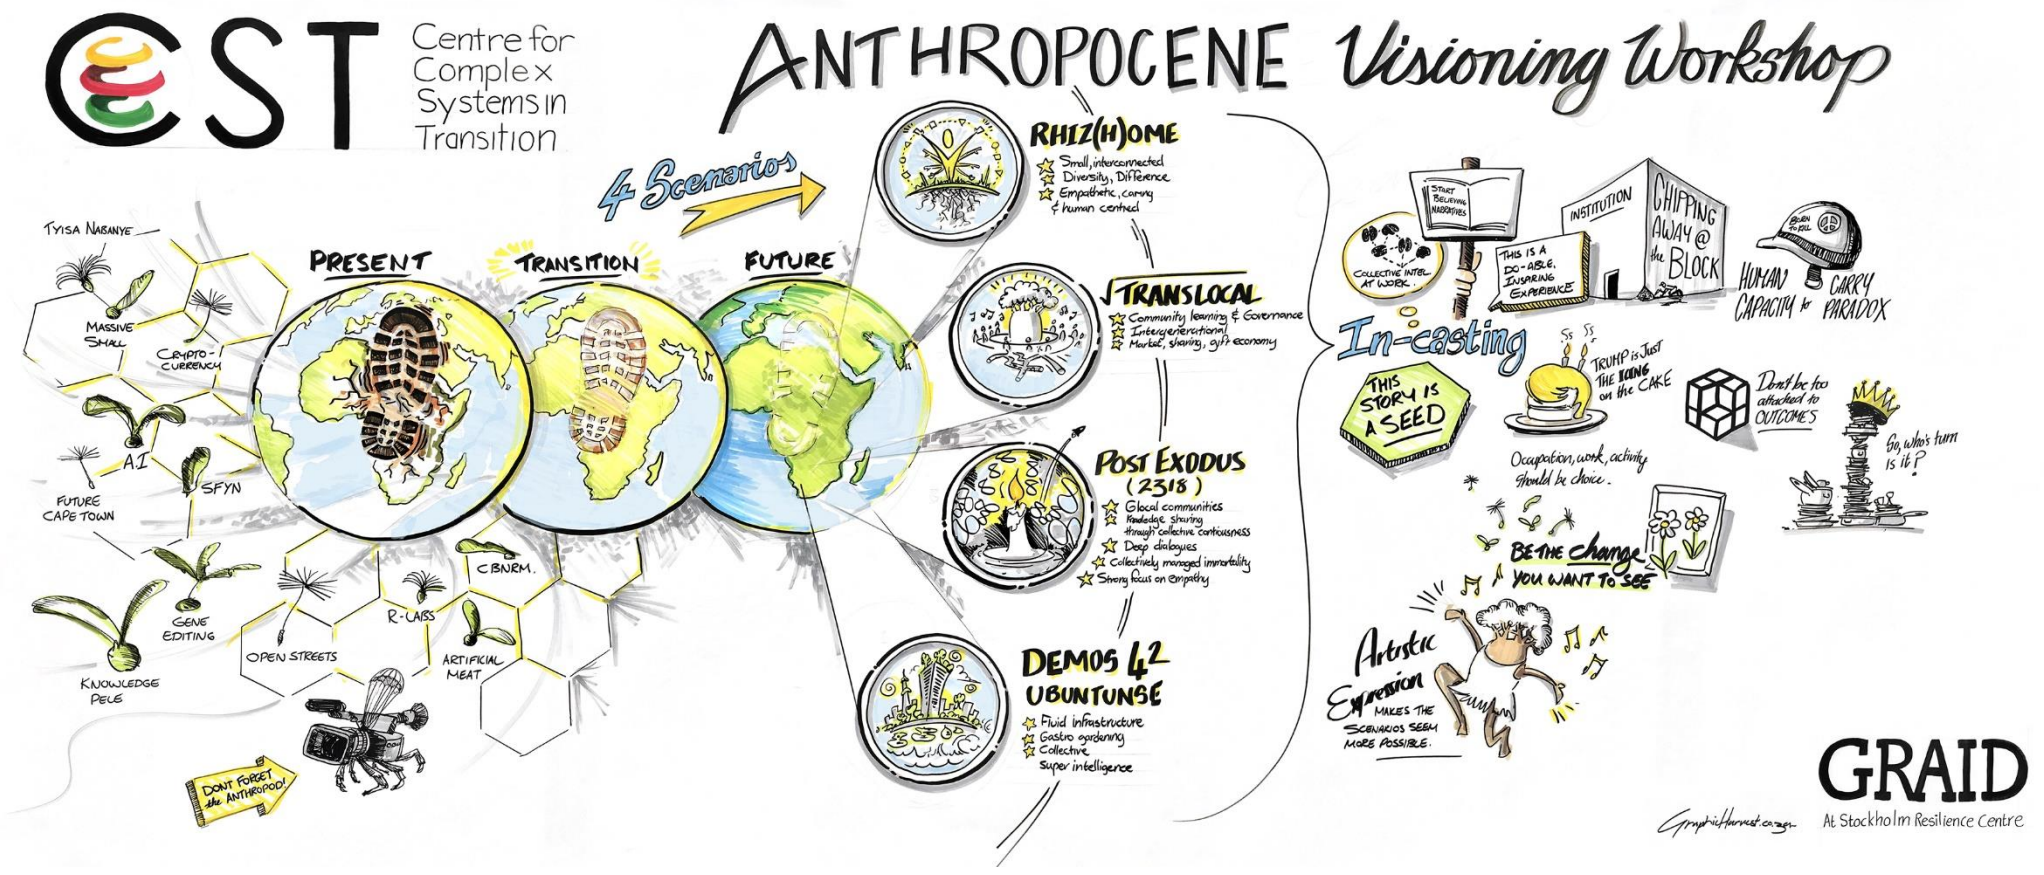 CST
Centre for
Complex
Systems in
Transition
ANTHROPOCENE Visioning Workshop
4 Scenarios
PRESENT
TRANSITION
FUTURE
TYISA NABANYE
MASSIVE
SMALL
CRYPTO-
CURRENCY
A.I
SFYN
FUTURE
CAPE TOWN
GENE
EDITING
KNOWLEDGE
PELE
OPEN STREETS
R-LABS
CBNRM.
ARTIFICIAL
MEAT
DONT FORGET
the ANTHROPOD!
RHIZ(H)OME
Small, interconnected
Diversity, Difference
Empathetic, caring
& human centred
TRANSLOCAL
Community learning & Governance
Intergenerational
Market, sharing, gift economy
POST EXODUS
(2318)
Glocal communities
Knowledge sharing
through collective contiousness
Deep dialogues
Collectively managed immortality
Strong focus on empathy
DEMOS 42
UBUNTUNSE
Fluid infrastructure
Gastro gardening
Collective
Super intelligence
START
BELIEVING
NARRATIVES
COLLECTIVE INTEL.
AT WORK.
THIS IS A
DO-ABLE,
INSPIRING
EXPERIENCE
INSTITUTION
CHIPPING
AWAY @
the BLOCK
BORN
TO KILL
HUMAN CARRY
CAPACITY to PARADOX
In-casting
THIS
STORY IS
A SEED
TRUMP is Just
THE ICING
on the CAKE
Don't be too
attached to
OUTCOMES
So, who's turn
is it?
Occupation, work, activity
should be choice.
BE THE change
YOU WANT TO SEE
Artistic
Expression
MAKES THE
SCENARIOS SEEM
MORE POSSIBLE.
GRAID
At Stockholm Resilience Centre